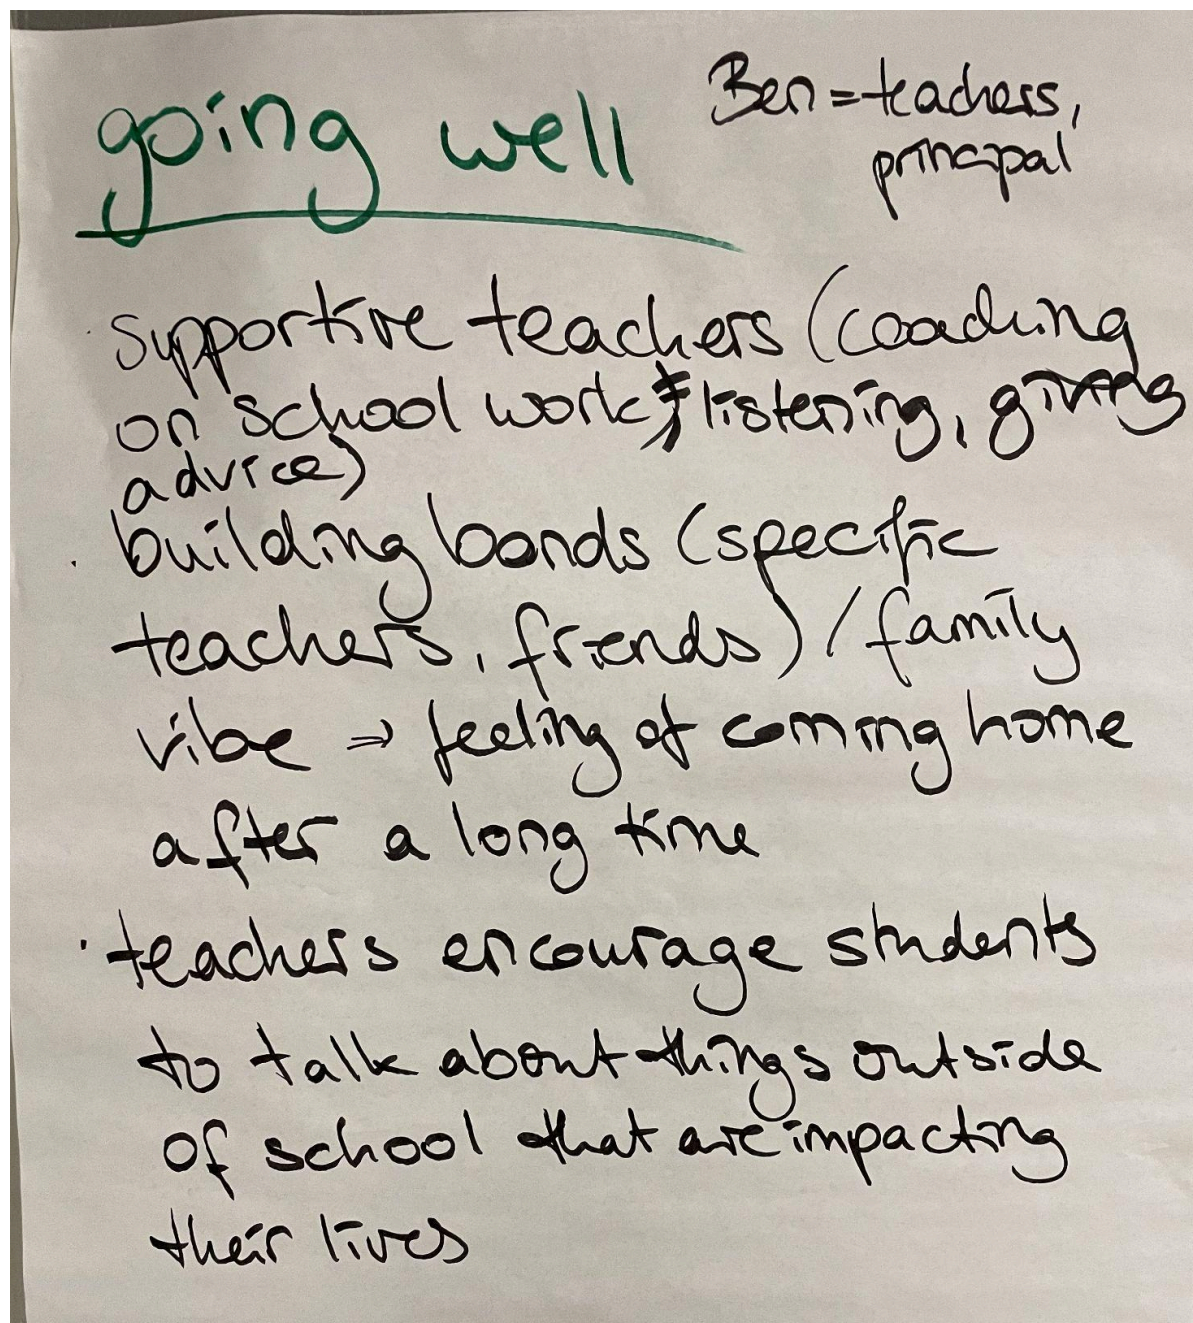 going well
Ben = teachers,
principal
· supportive teachers (coaching
on school work, listening, giving
advice)
· building bonds (specific
teachers, friends) / family
vibe ⇒ feeling of coming home
after a long time
· teachers encourage students
to talk about things outside
of school that are impacting
their lives